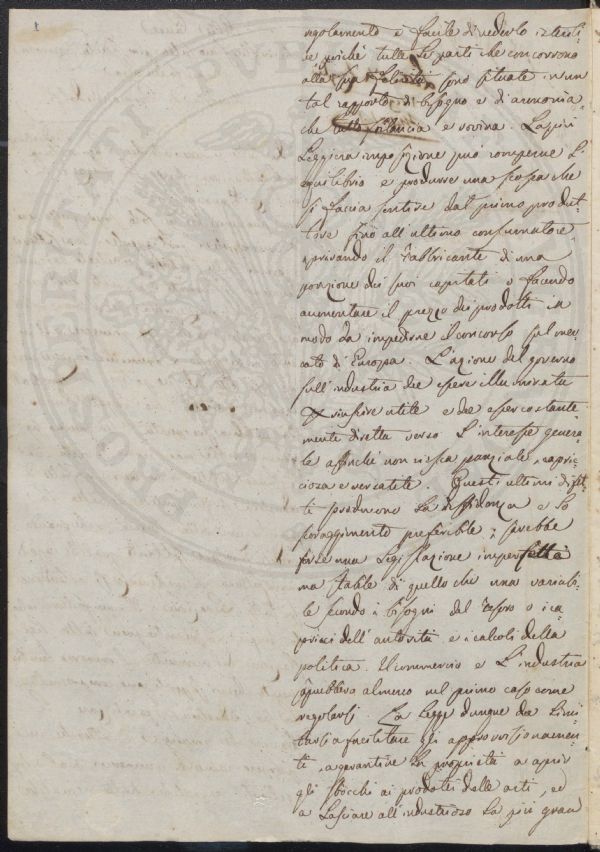 1
regolamento è facile di vederlo isterili-
re poichè tutte le parti che concorrono
alla sua felicità sono situate in un
tal rapporto di bisogno e di armonia
che tutto si bilancia e rovina. La più
leggiera imposizione può romperne l'
equilibrio e produrre una scossa che
si faccia sentire dal primo produt-
tore sino all'ultimo consumatore,
privando il fabbricante di una
porzione dei suoi capitali o facendo
aumentare il prezzo dei prodotti in
modo da impedirne il concorso sul mer-
cato di Europa. L'azione del governo
sull'industria dee essere illuminata
riuscire utile e dee esser costante-
mente diretta verso l'interesse genera-
le affinchè non riesca parziale, capric-
ciosa e versatile. Questi ultimi difet-
ti producono la diffidenza e lo
scoraggimento preferibile; sarebbe
forse una legislazione imperfetta
ma stabile di quello che una variabi-
le secondo i bisogni del Tesoro o i ca-
pricci dell'autorità e i calcoli della
politica. Il commercio e l'industria
saprebbero almeno nel primo caso come
regolarsi. La legge dunque dee limi-
tarsi a facilitare gli approvvisionamen-
ti, a garantire la proprietà a aprir
gli sbocchi ai prodotti delle arti, ed
a lasciare all'industrioso la più gran